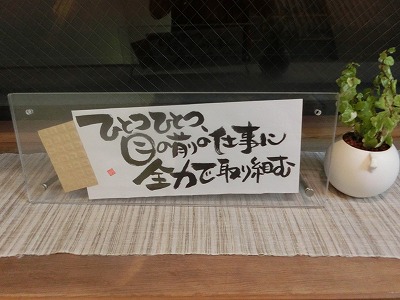 ひとつひとつ、
目の前の仕事に
全力で取り組む